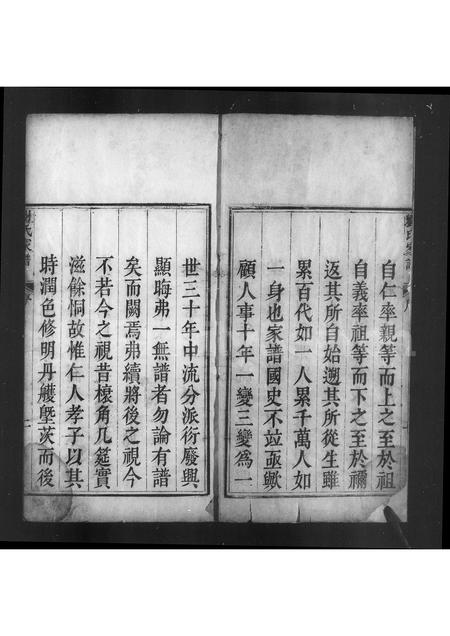 自仁率親等而上之至於祖
自義率祖等而下之至於禰
返其所自始遡其所從生雖
累百代如一人累千萬人如
一身也家譜國史不竝亟歟
顧人事十年一變三變爲一
世三十年中流分派衍廢興
顯晦弗一無譜者勿論有譜
矣而闕焉弗續將後之視今
不若今之視昔榱角几筵實
滋餘恫故惟仁人孝子以其
時潤色修明丹雘塈茨而後
氏家譜